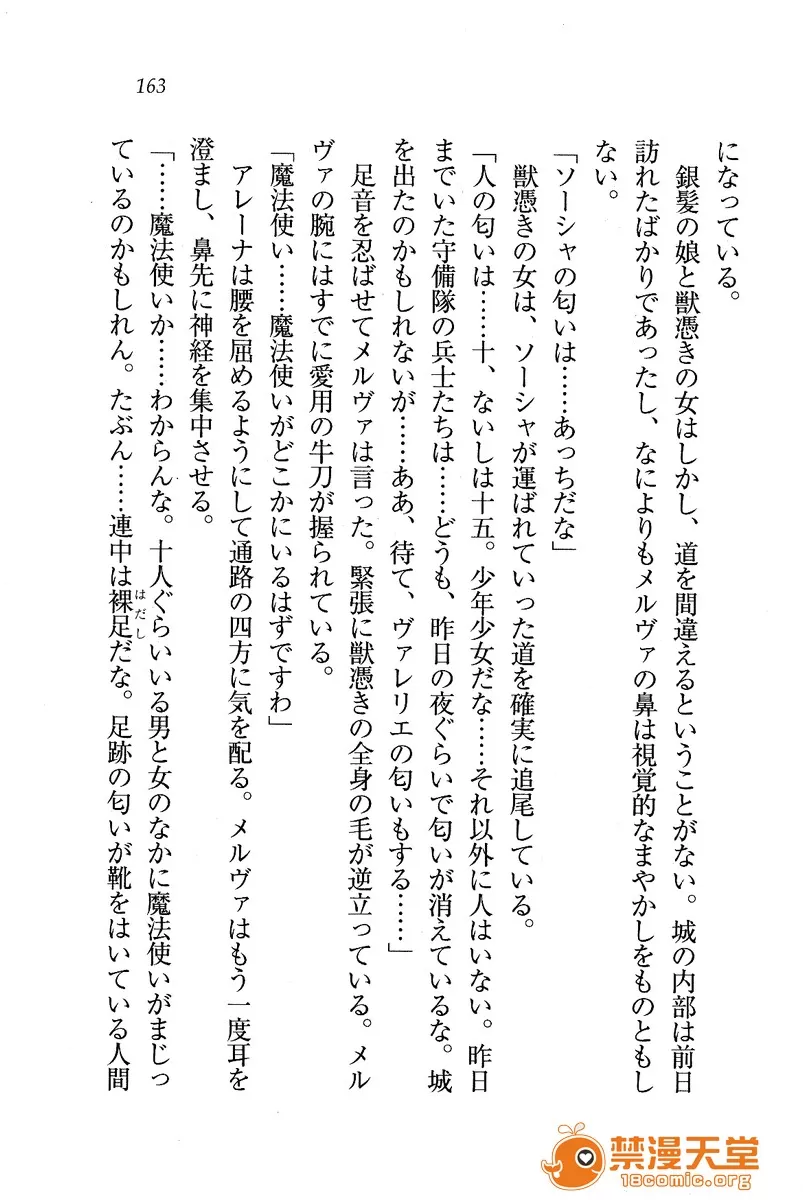 163
になっている。
銀髪の娘と獣憑きの女はしかし、道を間違えるということがない。城の内部は前日
訪れたばかりであったし、なによりもメルヴァの鼻は視覚的なまやかしをものともし
ない。
「ソーシャの匂いは……あっちだな」
獣憑きの女は、ソーシャが運ばれていった道を確実に追尾している。
「人の匂いは……十、ないしは十五。少年少女だな……それ以外に人はいない。昨日
までいた守備隊の兵士たちは……どうも、昨日の夜ぐらいで匂いが消えているな。城
を出たのかもしれないが……ああ、待て、ヴァレリエの匂いもする……」
足音を忍ばせてメルヴァは言った。緊張に獣憑きの全身の毛が逆立っている。メル
ヴァの腕にはすでに愛用の牛刀が握られている。
「魔法使い……魔法使いがどこかにいるはずですわ」
アレーナは腰を屈めるようにして通路の四方に気を配る。メルヴァはもう一度耳を
澄まし、鼻先に神経を集中させる。
「……魔法使いか……わからんな。十人ぐらいいる男と女のなかに魔法使いがまじっ
ているのかもしれん。たぶん……連中は裸足だな。足跡の匂いが靴をはいている人間
はだし
禁漫天堂
18comic.org